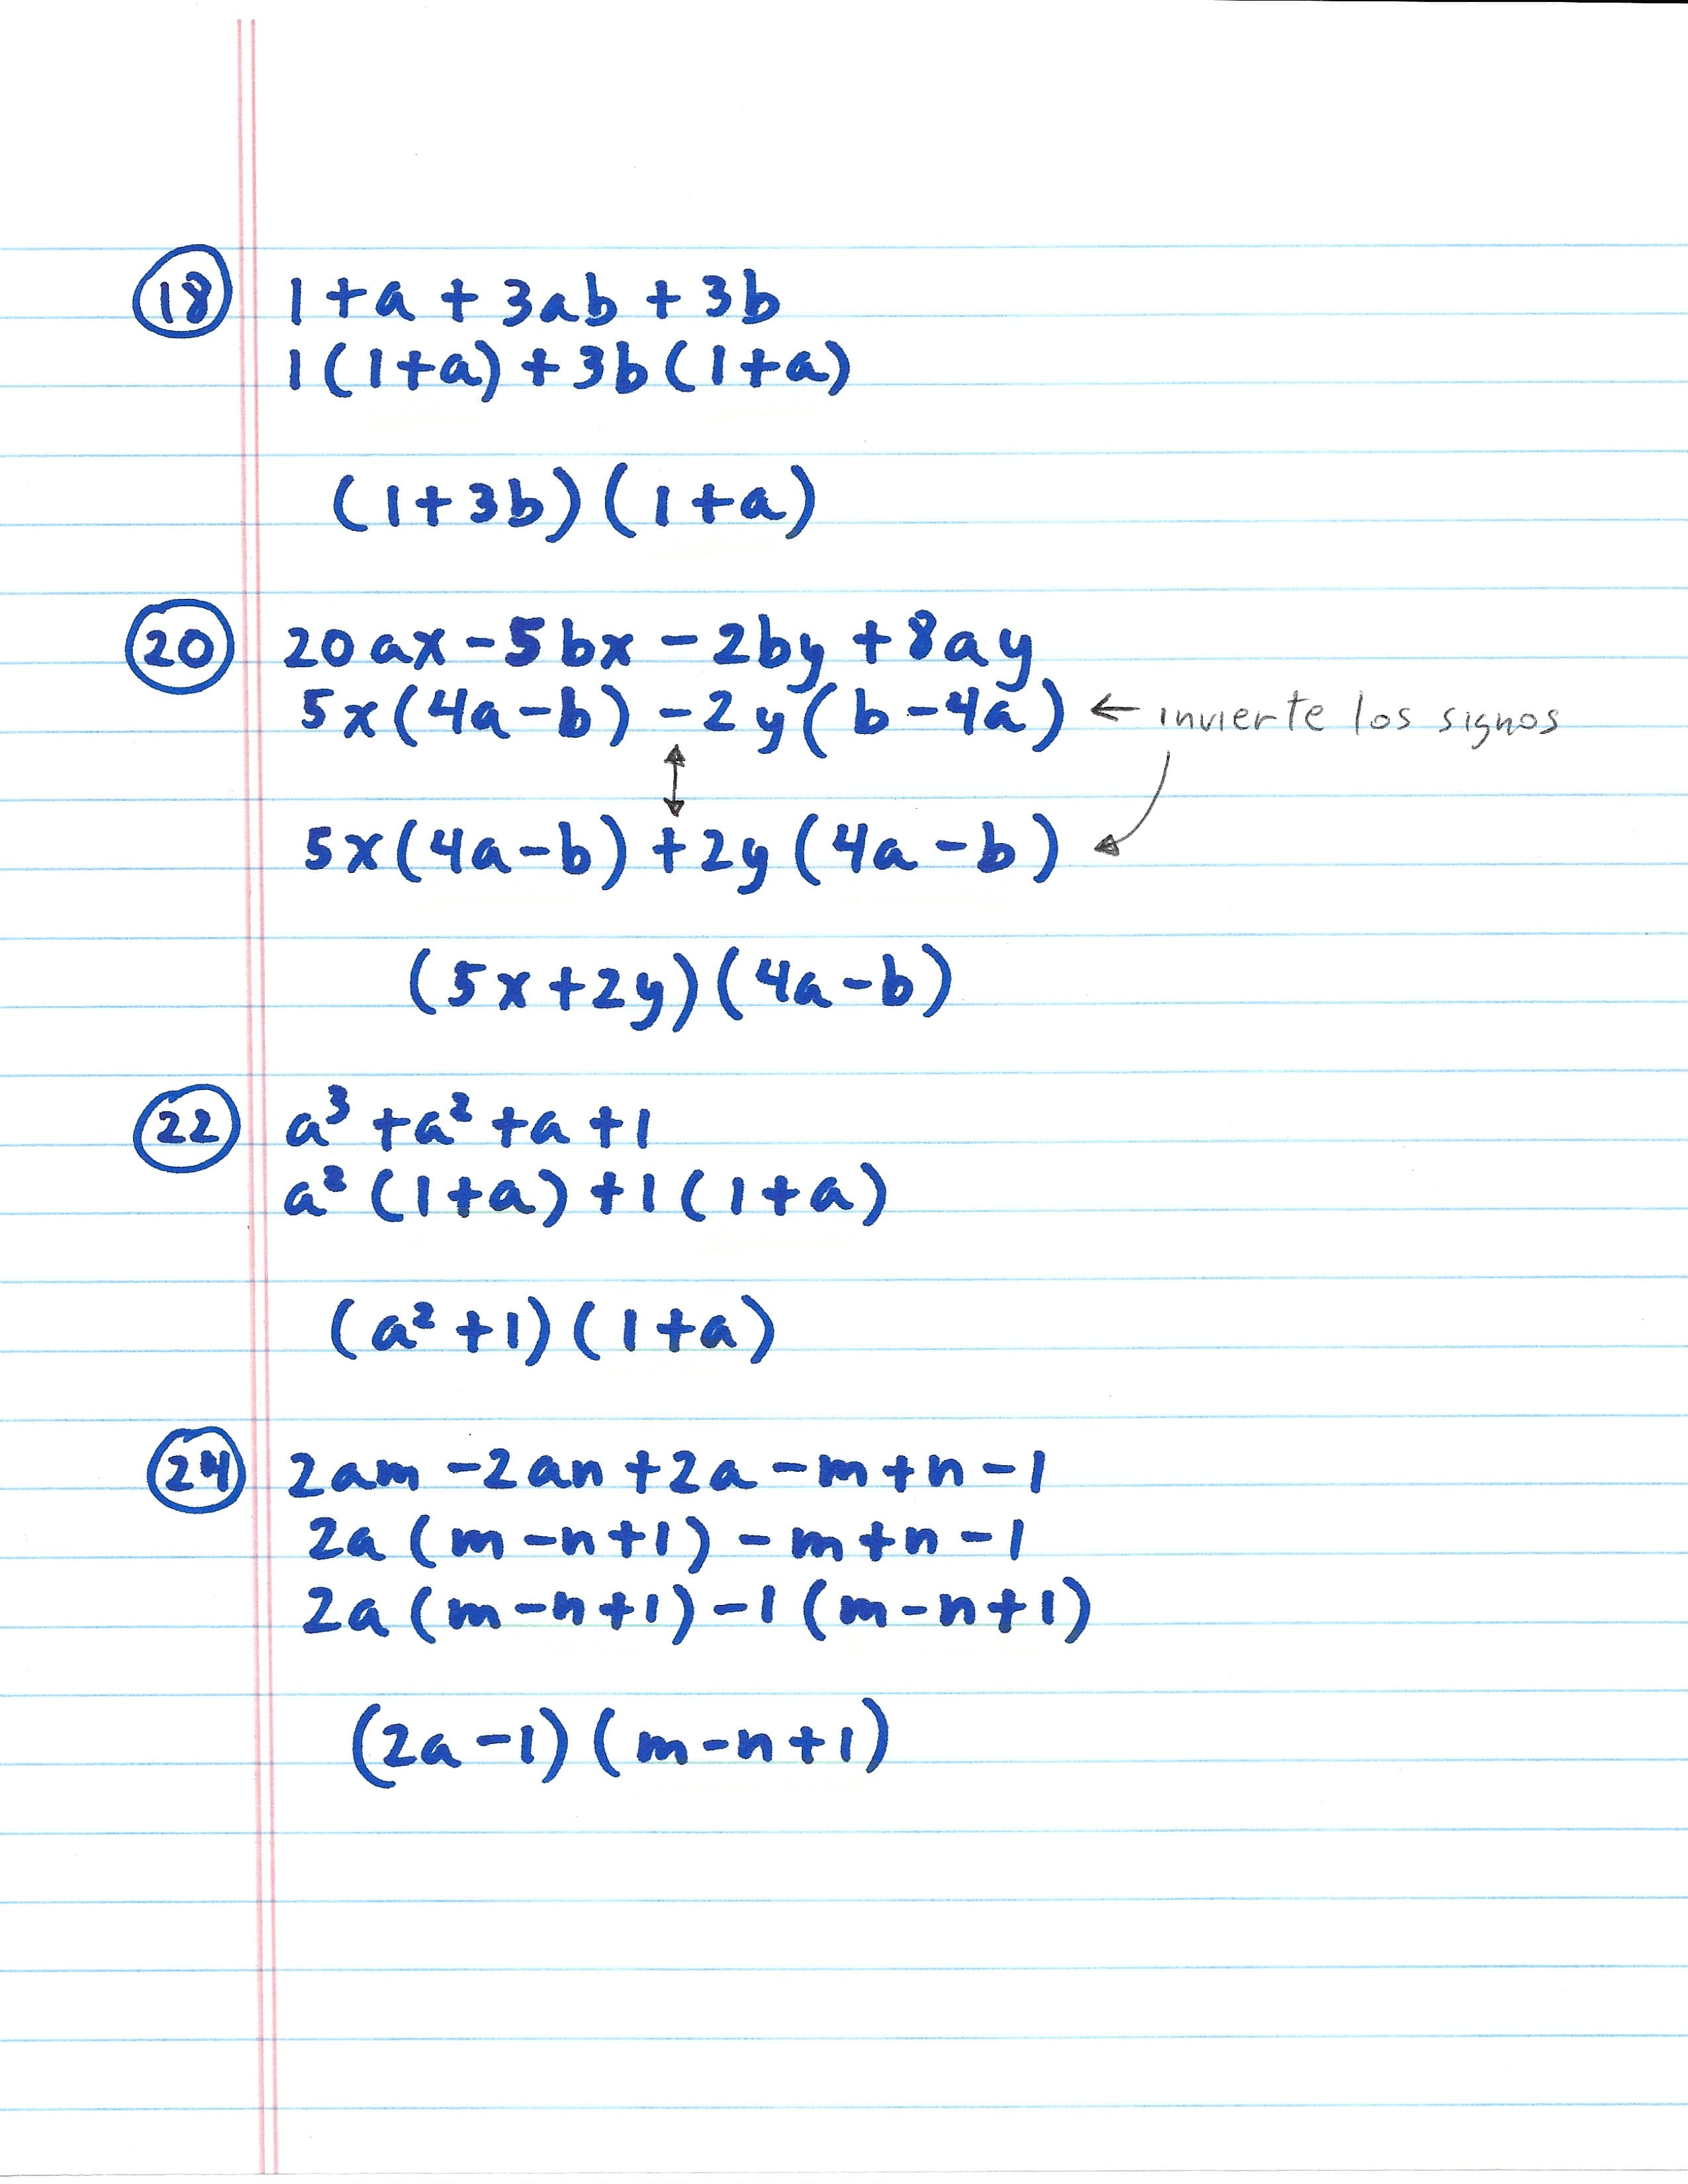 18 1 + a + 3ab + 3b
1(1+a) + 3b(1+a)
(1+3b)(1+a)
20 20ax - 5bx - 2by + 8ay
5x(4a-b) - 2y(b-4a) ← invierte los signos
5x(4a-b) + 2y(4a-b)
(5x+2y)(4a-b)
22 a³ + a² + a + 1
a²(1+a) + 1(1+a)
(a²+1)(1+a)
24 2am - 2an + 2a - m + n - 1
2a(m-n+1) - m + n - 1
2a(m-n+1) - 1(m-n+1)
(2a-1)(m-n+1)